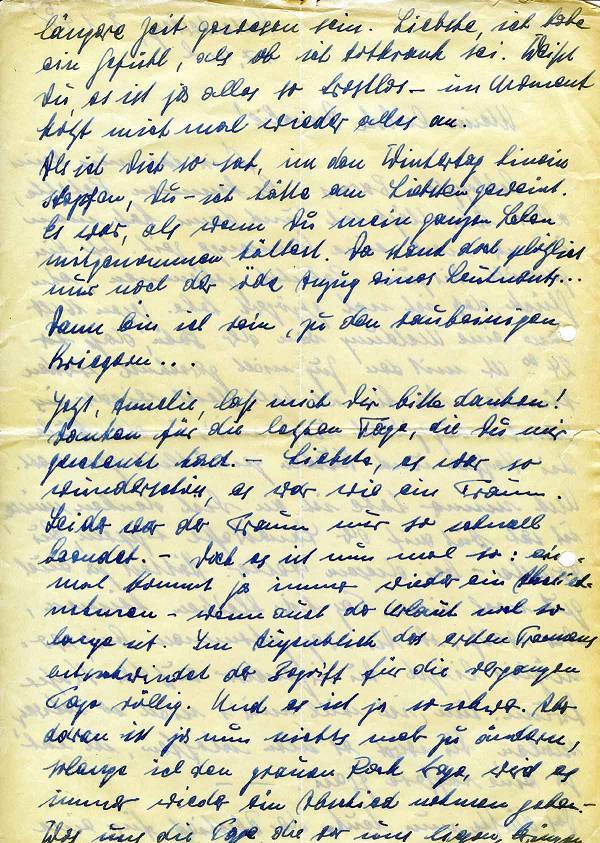 längere Zeit gewesen sein. Liebste, ich habe
ein Gefühl, als ob ich totkrank sei. Weißt
Du, es ist ja alles so trostlos – im Moment
kotzt mich mal wieder alles an.
Als ich Dich so sah, in den Wintertag hinein
stapfen, Du – ich hätte am Liebsten geweint.
Es war, als wenn Du mein ganzes Leben
mitgenommen hättest. Da stand doch plötzlich
nur noch der öde Anzug eines Leutnants...
Dann bin ich rein, zu den rauhbeinigen
Kriegern...
Jetzt, Amelie, laß mich Dir bitte danken!
Danken für die letzten Tage, die Du mir
geschenkt hast. – Liebste, es war so
wunderschön, es war wie ein Traum.
Leider war der Traum nur so schnell
beendet. – Doch es ist nun mal so: ein-
mal kommt ja immer wieder ein Abschied-
nehmen – wenn auch der Urlaub noch so
lange ist. Im Augenblick des ersten Trennens
entschwindet der Begriff für die vergangen
Tage völlig. Und es ist ja so schwer. Aber
daran ist ja nun nichts mehr zu ändern,
solange ich den grauen Rock trage, wird es
immer wieder ein Abschied nehmen geben.–
Was uns die Tage, die vor uns liegen, bringen